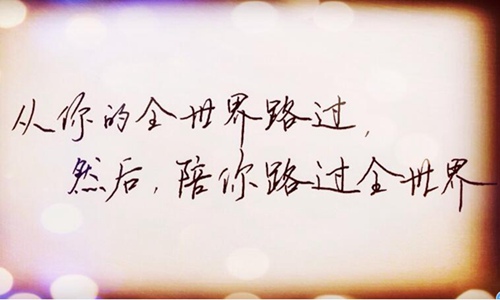 从你的全世界路过，
然后，陪你路过全世界